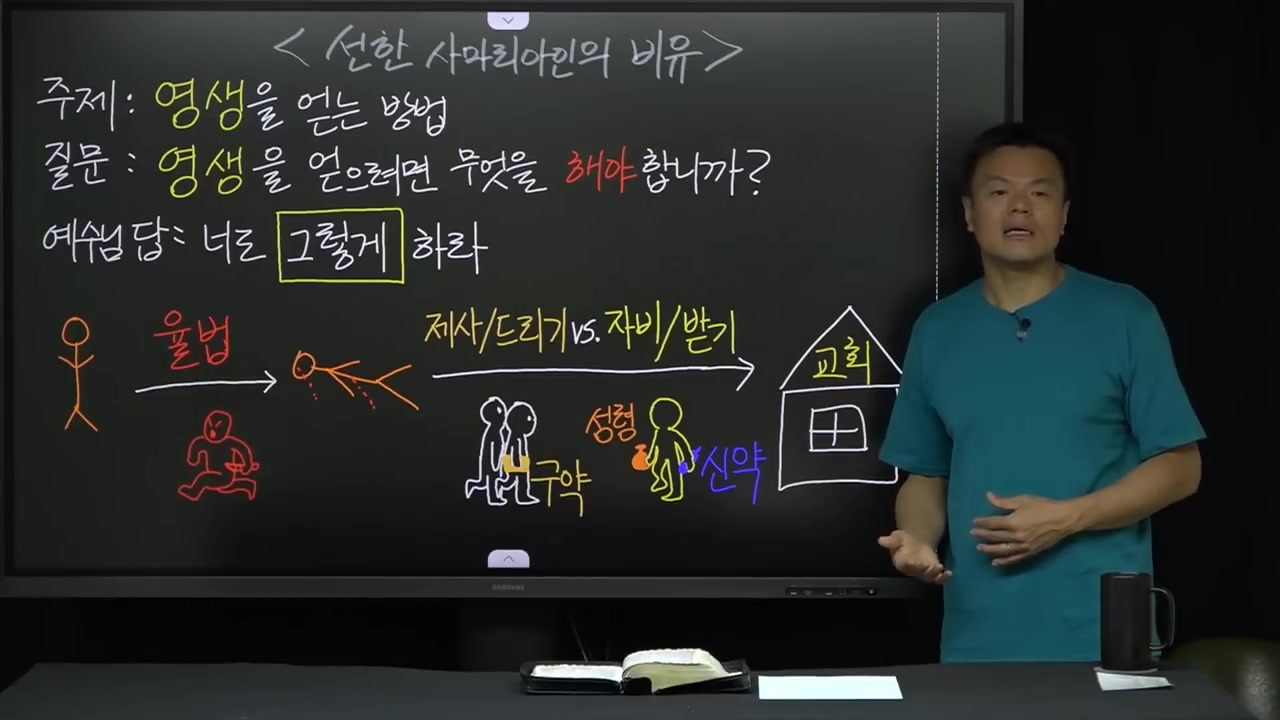 < 선한 사마리아인의 비유 >
주제 : 영생을 얻는 방법
질문 : 영생을 얻으려면 무엇을 해야 합니까?
예수님 답 : 너도 그렇게 하라
율법
제사/드리기 vs. 자비/받기
교회
성령
구약
신약
SAMSUNG